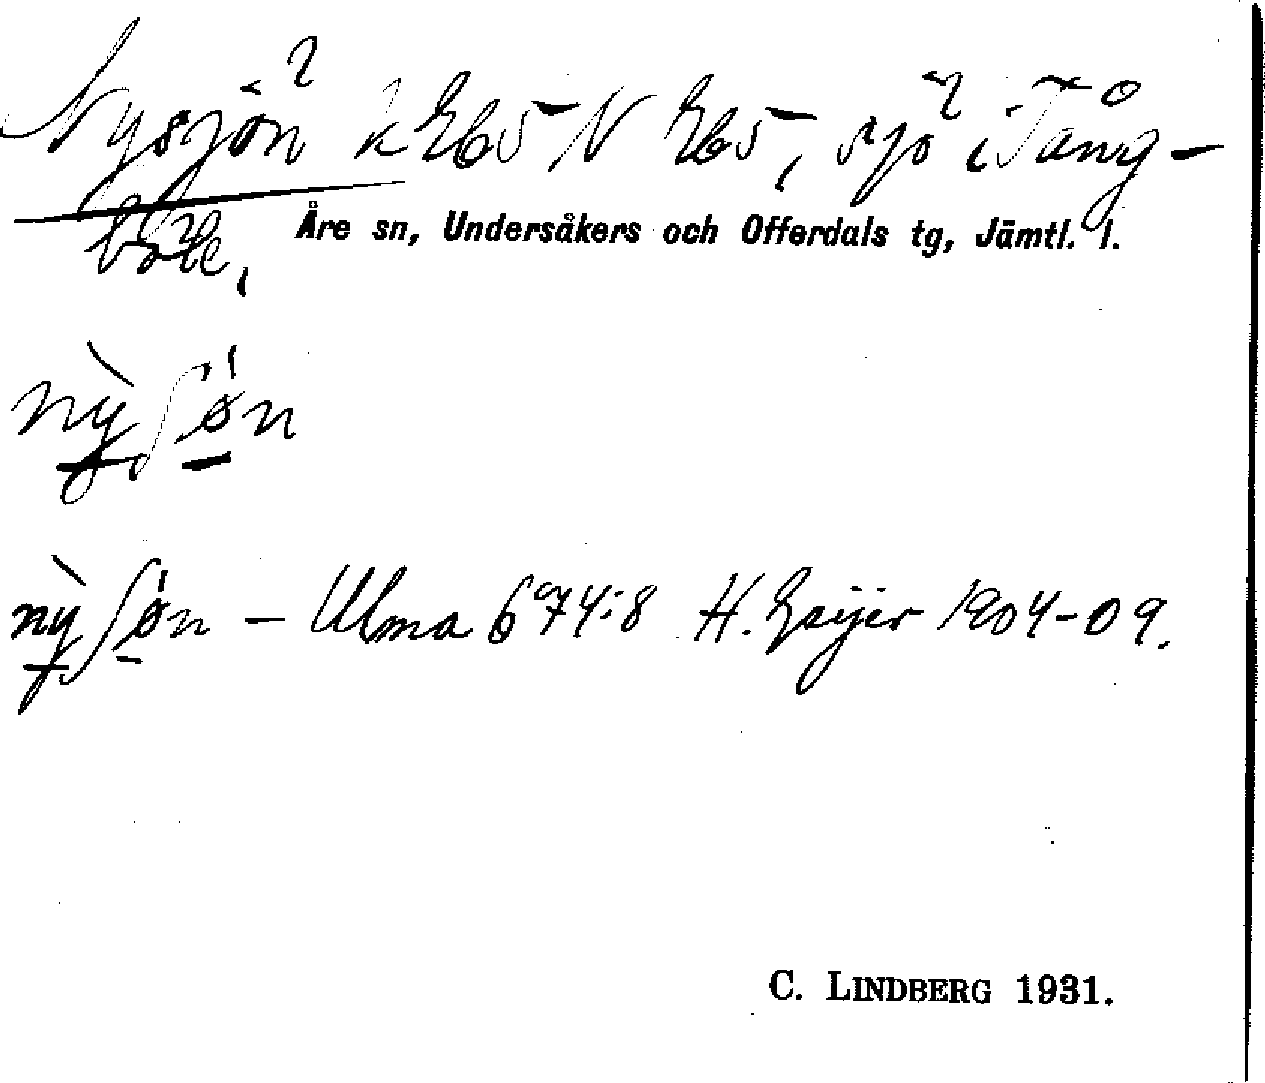 Nysjön k Eb5 N Eb5, sjö i Tång-
böle,
Åre sn, Undersåkers och Offerdals tg, Jämtl. l.
nỳʃøn
nỳʃøn – Ulma 674:8 H. Geijer 1904-09.
C. LINDBERG 1931.